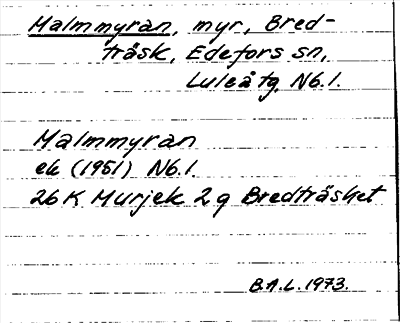 Malmmyran, myr, Bred-
träsk, Edefors sn,
Luleå tg, N6.1.
Malmmyran
ek (1951) N6.1.
26 K Murjek 2 g Bredträsket
B.A.L. 1973.